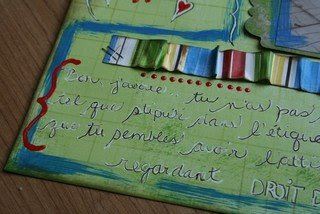 Bon, j'avoue... tu n'as pas
que stupeur dans l'étique
que tu sembles avoir
regardant
DROIT D